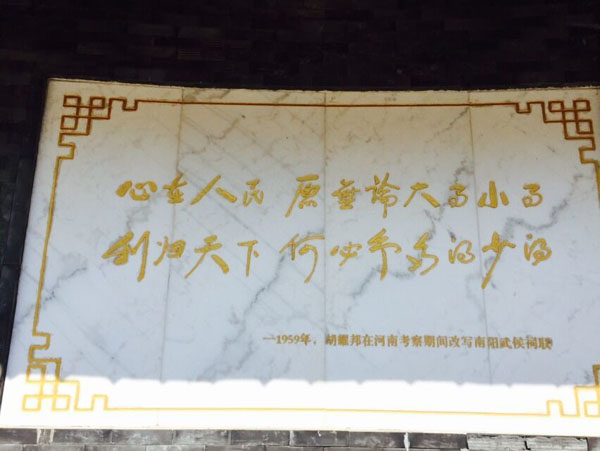 心在人民 原無論大事小事
利归天下 何必争多得少得
—1959年，胡耀邦在河南考察期间改写南阳武侯祠联